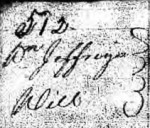 512
Wm Jeffreys
Will